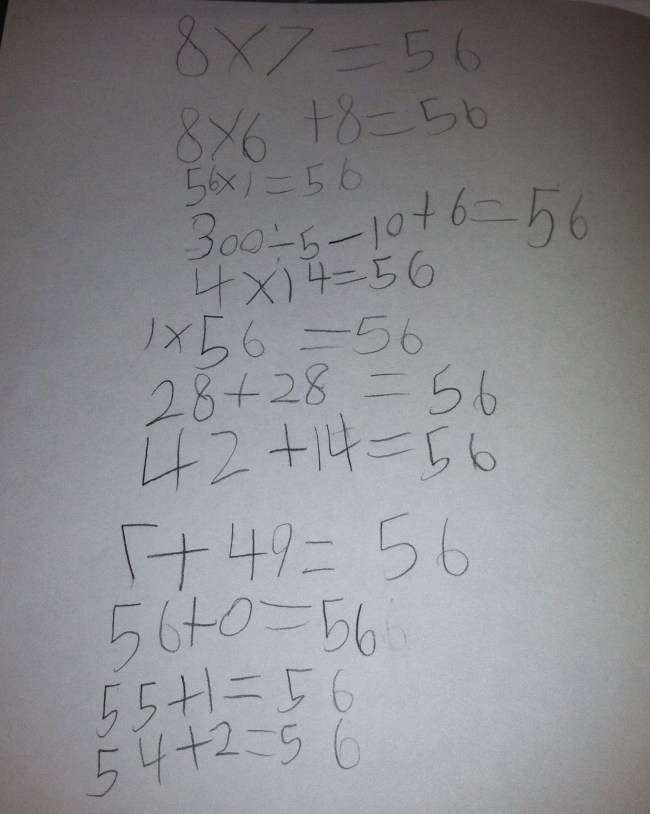 8×7=56
8×6+8=56
56×1=56
300÷5-10+6=56
4×14=56
1×56=56
28+28=56
42+14=56
7+49=56
56+0=56
55+1=56
54+2=56